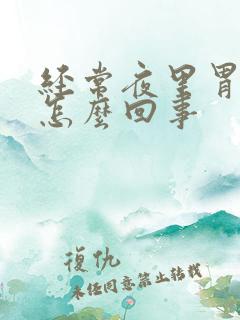 經常夜里胃
怎麼回事
復仇
未經同意禁止轉載